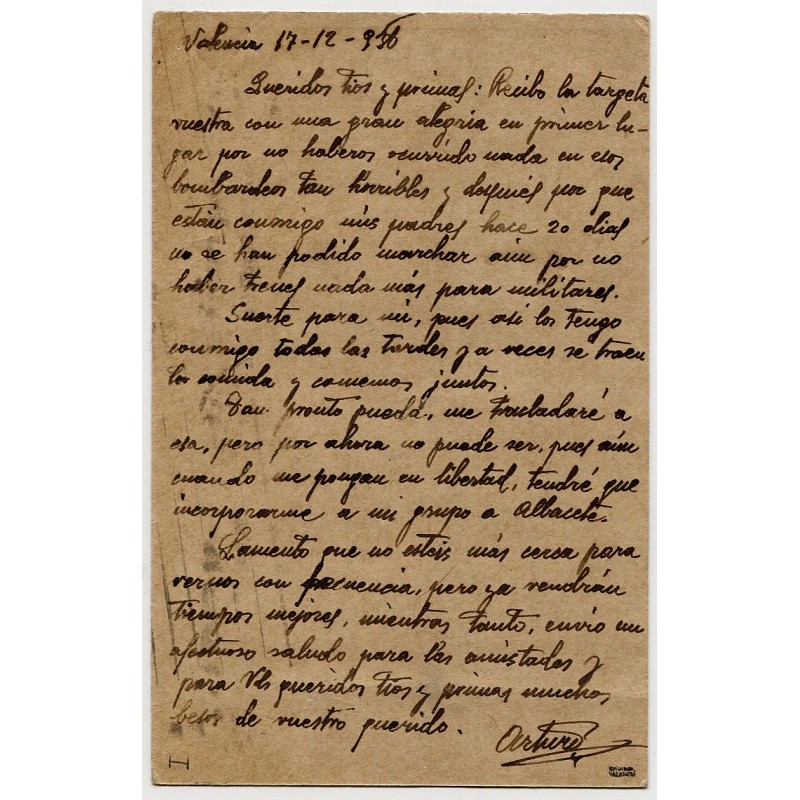 Valencia 17-12-936
Queridos tios y primas: Recibo la targeta
vuestra con una gran alegria en primer lu-
gar por no haberos ocurrido nada en esos
bombardeos tan horribles y después por que
están conmigo mis padres hace 20 dias
no se han podido marchar aún por no
haber trenes nada más para militares.
Suerte para mi, pues asi los tengo
conmigo todas las tardes y a veces se traen
la comida y comemos juntos.
Tan pronto pueda, me trasladaré a
esa, pero por ahora no puede ser, pues aún
cuando me pongan en libertad, tendré que
incorporarme a mi grupo a Albacete.
Lamento que no esteis más cerca para
vernos con frecuencia, pero ya vendrán
tiempos mejores, mientras tanto, envio un
afectuoso saludo para las amistades y
para Vds queridos tios y primas muchos
besos de vuestro querido.
Arturo